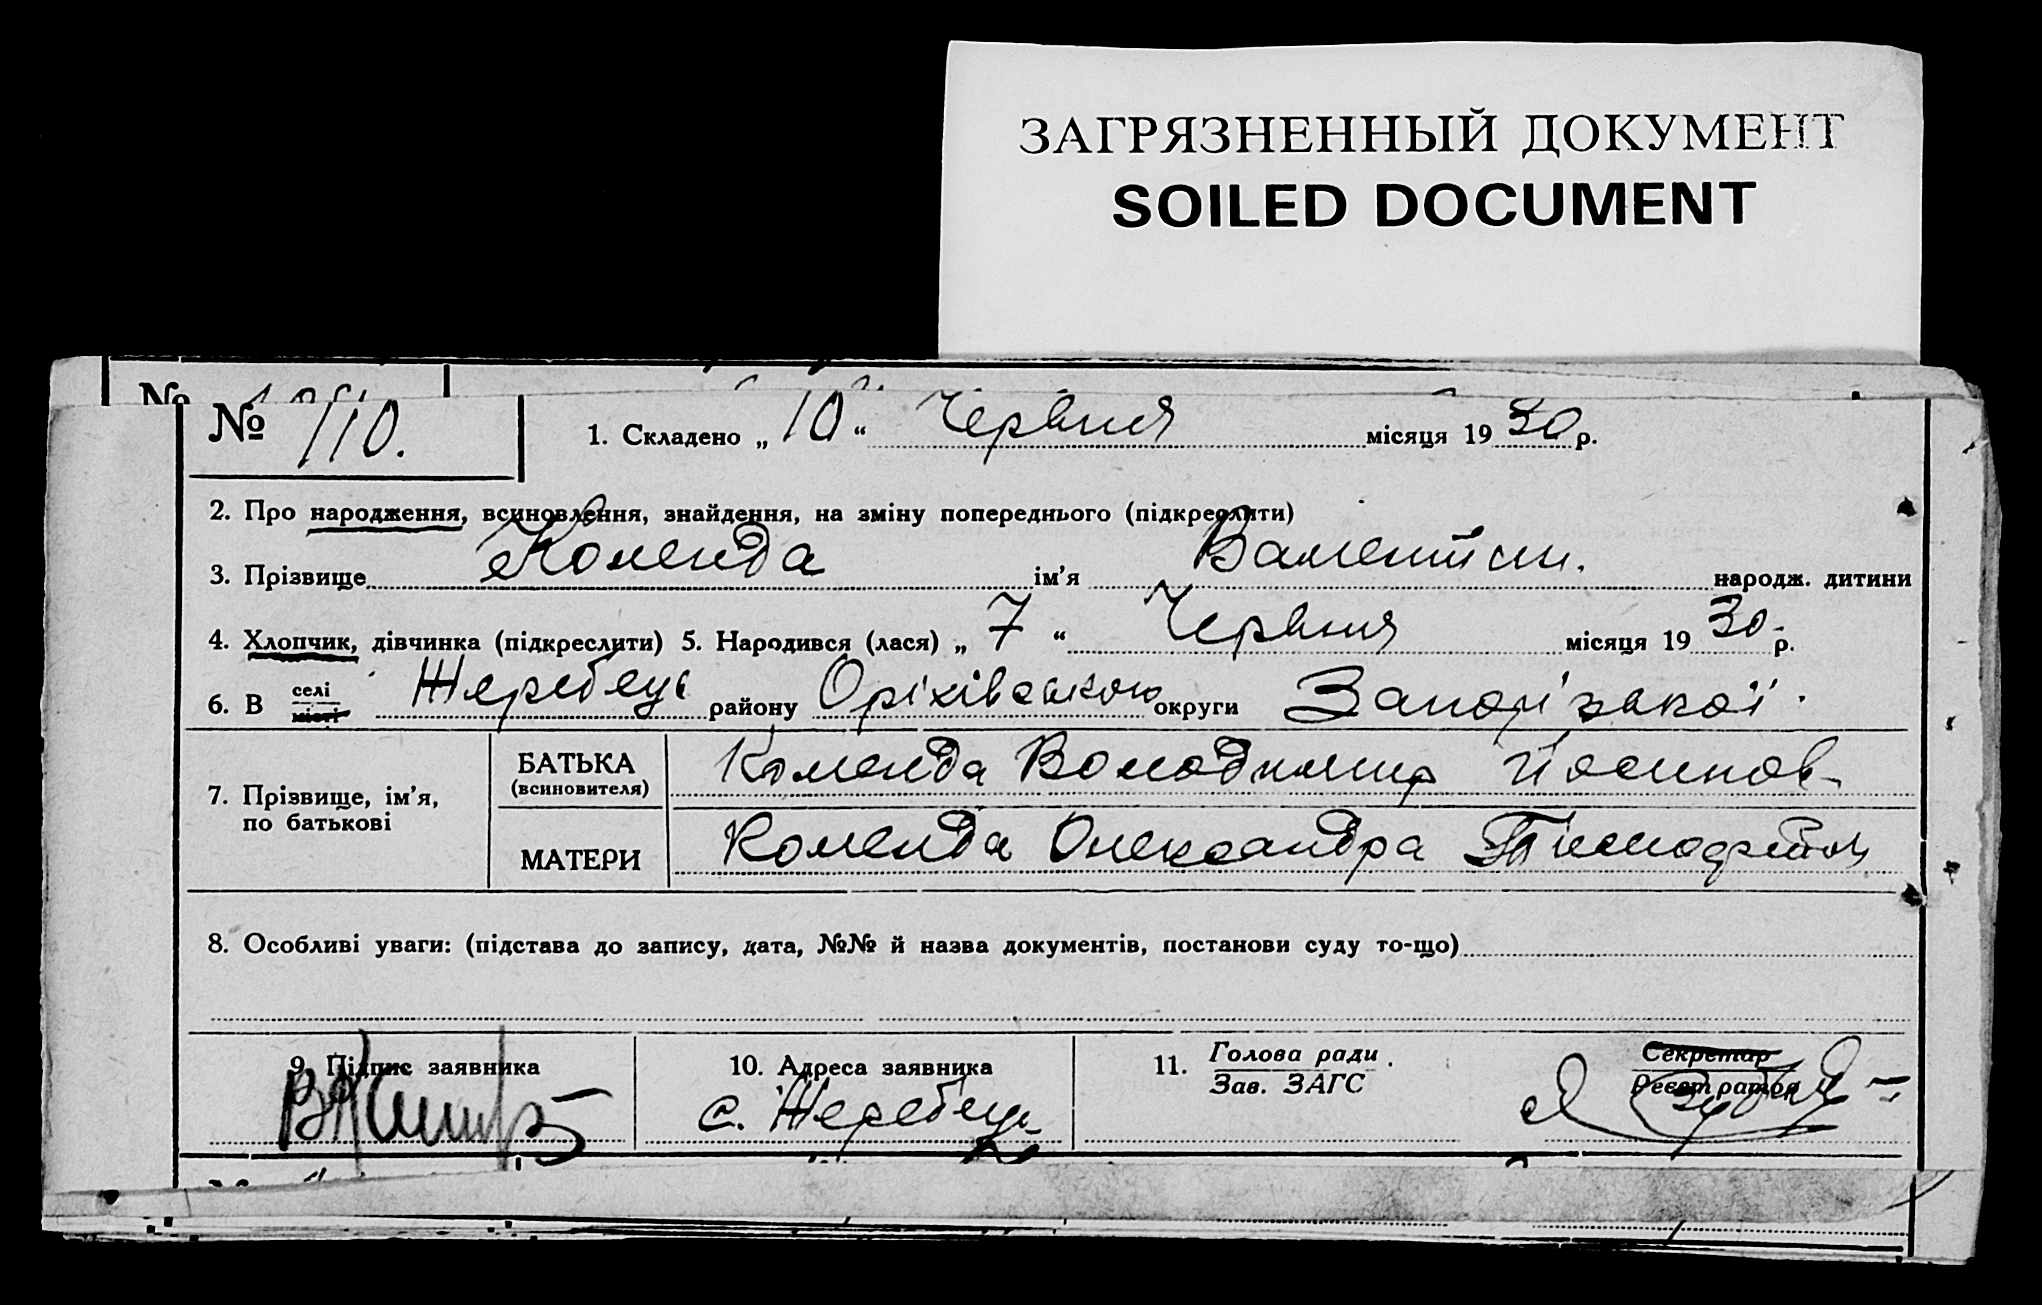 ЗАГРЯЗНЕННЫЙ ДОКУМЕНТ
SOILED DOCUMENT
№
№ 110.
1. Складено „ 10 “ Червня місяця 19 30 р.
2. Про народження, всиновлення, знайдення, на зміну попереднього (підкреслити)
3. Прізвище Коменда ім’я Валентин. народж. дитини
4. Хлопчик, дівчинка (підкреслити) 5. Народився (лася) „ 7 “ Червня місяця 19 30 р.
6. В селі місті Жеребець району Оріхівського округи Запорізької
7. Прізвище, ім’я, по батькові
БАТЬКА (всиновителя) Коменда Володимир Йосипов
МАТЕРИ Коменда Олександра
8. Особливі уваги: (підстава до запису, дата, №№ й назва документів, постанови суду то-що)
9. Підпис заявника
10. Адреса заявника
с. Жеребець
11. Голова ради
Зав. ЗАГС
Секретар
Реєстратор